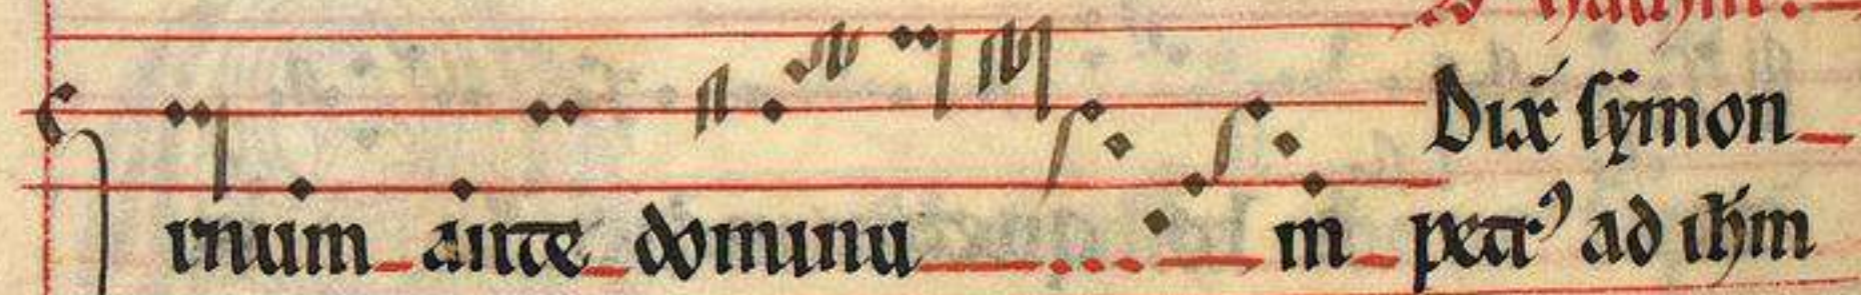 Dix̄ symon
rnum ante dominu m petrꝰ ad ihm̄